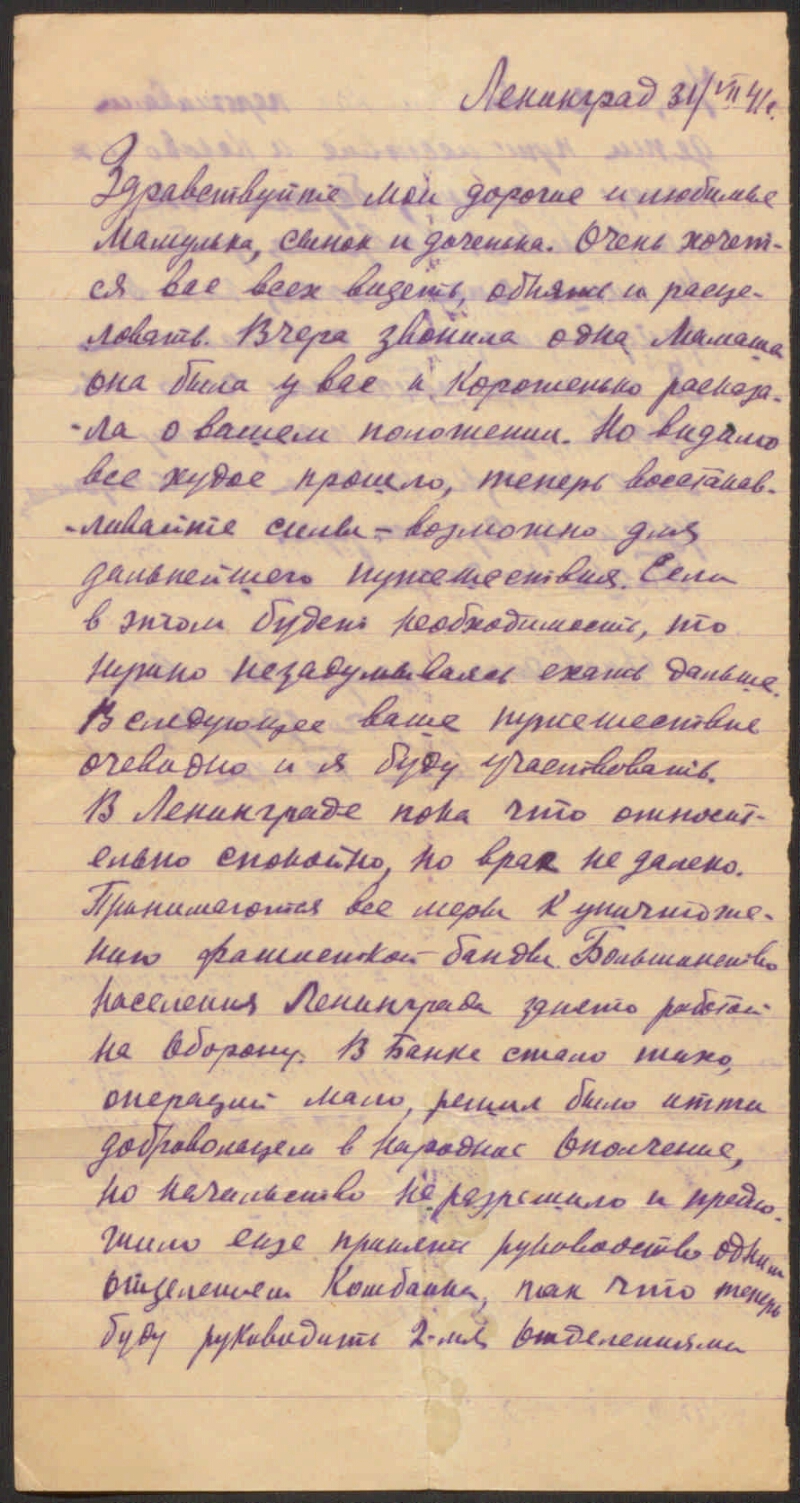 Ленинград 31/VII 41г.
Здравствуйте мои дорогие и любимые
Мамулька, сынок и доченька. Очень хочет-
ся вас всех видеть, обнять и расце-
ловать. Вчера звонила одна мамаша
она была у вас и коротенько расказа-
-ла о вашем положении. Но видимо
все худое прошло, теперь восстанав-
-ливайте силы – возможно для
дальнейшего путешествия. Если
в этом будет необходимость, то
нужно незадумываясь ехать дальше.
В следующее ваше путешествие
очевидно и я буду участвовать.
В Ленинграде пока что относит-
ельно спокойно, но враг не далеко.
Принимаются все меры к уничтоже-
нию фашистской банды. Большинство
населения Ленинграда занято работой
на оборону. В Банке стало тихо,
операций мало, решил было итти
добровольцем в народное ополчение,
но начальство не разрешило и предло-
жило еще принять руководство одним
отделением Комбанка, так что теперь
буду руководить 2-мя отделениями